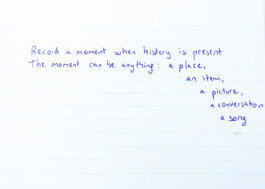 Record a moment when history is present
The moment can be anything: a place,
an item,
a picture,
a conversation
a song
...